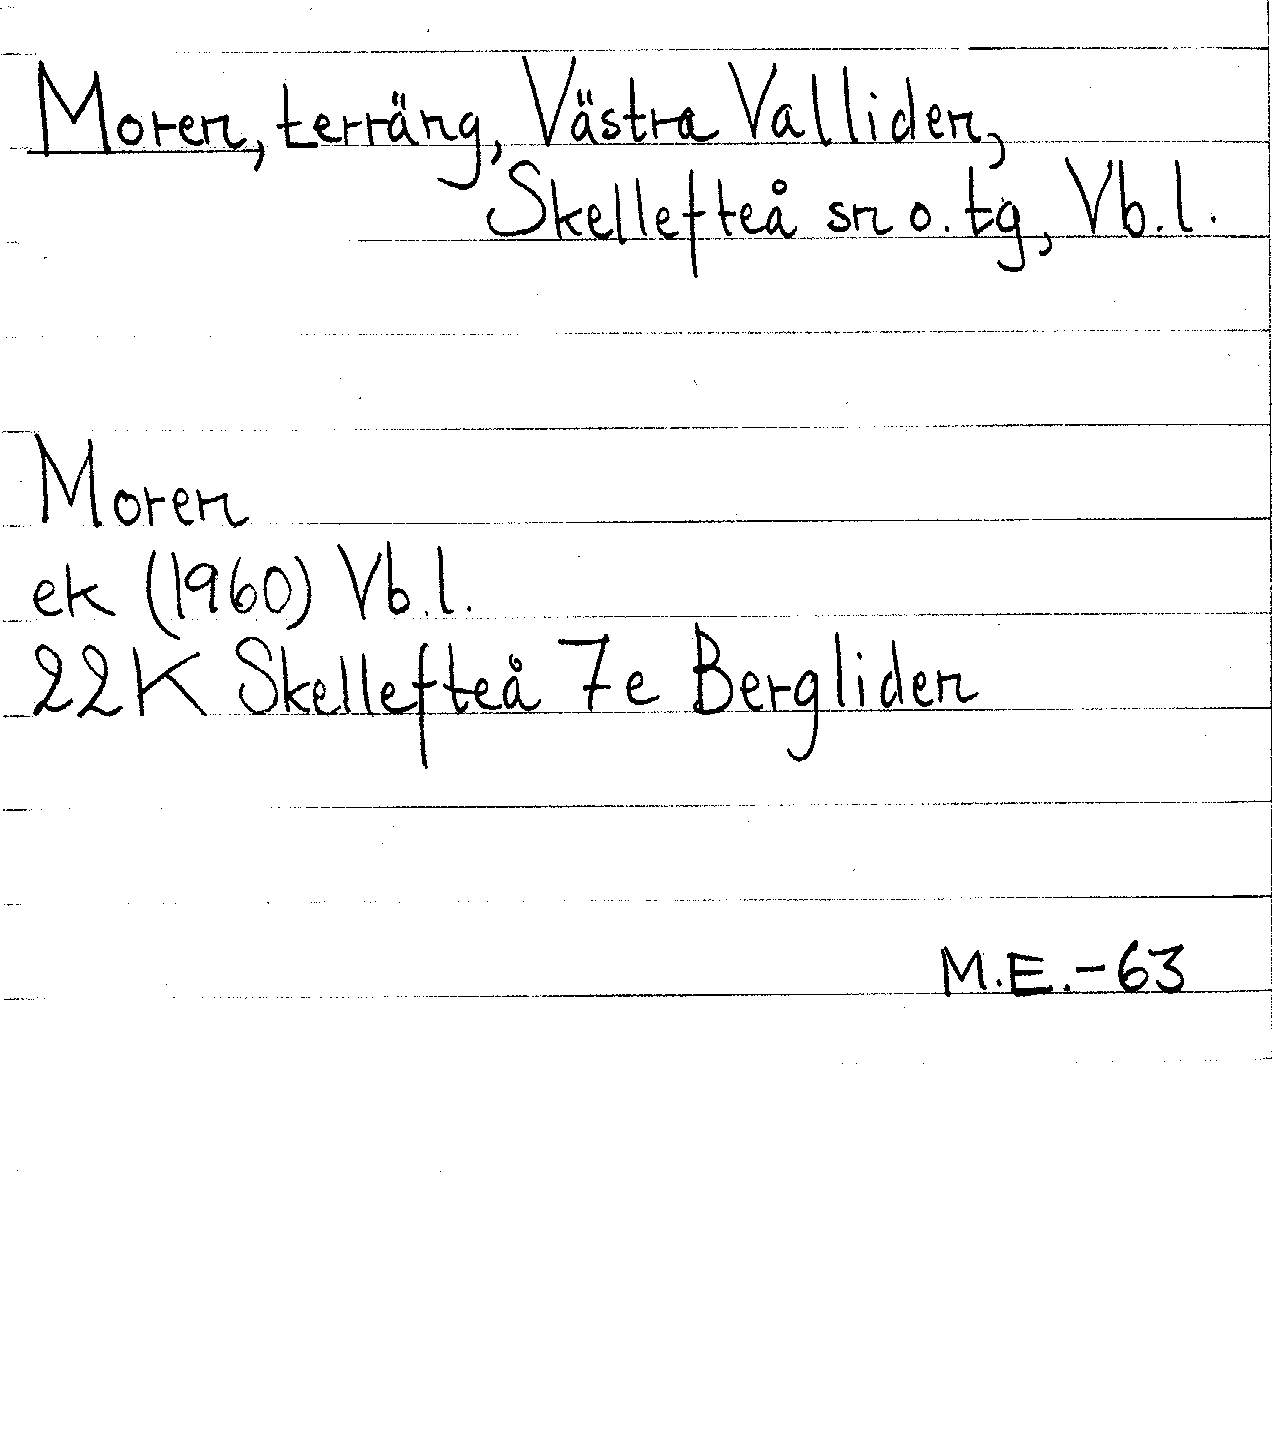 Moren, terräng, Västra Valliden,
Skellefteå sn o. tg, Vb.l.
Moren
ek (1960) Vb.l.
22K Skellefteå 7e Bergliden
M.E.-63